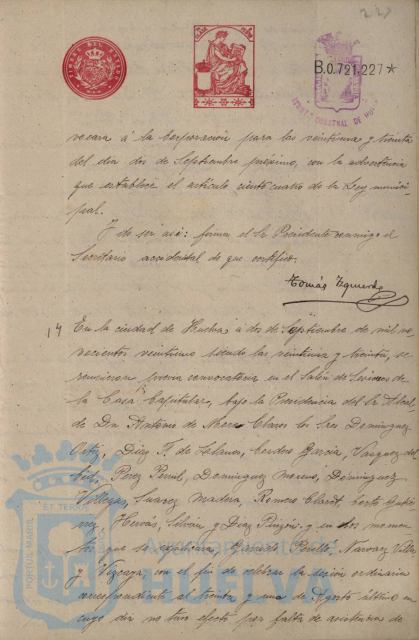 B.0.721.227*
vocara á la Corporacion para las veintiuna y treinta
del dia dos de Septiembre próximo, con la advertencia
que establece el artículo ciento cuatro de la Ley munici-
pal.
Y de ser asi: firma el Sr. Presidente conmigo el
Secretario accidental de que certifico.
Tomás Izquierdo
En la ciudad de Huelva á dos de Septiembre de mil no-
vecientos veintiuno siendo las veintiuna y treinta, se
reunieron previa convocatoria en el Salón de Sesiones de
la Casa Capitular, bajo la Presidencia del Sr. Alcal-
de Don Antonio de Mora Claros los Sres Dominguez
Ortiz, Diaz F. de Salamo, Cordero Garcia, Vazquez del
Perez Dominguez Moreno, Dominguez
Villegas, Suarez Madera, Romero Claret,
Hervás, Silvan y Diaz Pinzón y en dos momen-
tos que se Garrido Perelló, Narvaez Villa
y Vizcaya con el fin de celebrar la sesión ordinaria
correspondiente al treinta y uno de Agosto último en
cuyo dia no tuvo efecto por falta de asistencia de
Ayuntamiento de
HUELVA
PORTUS MARIS
ET TERRAE